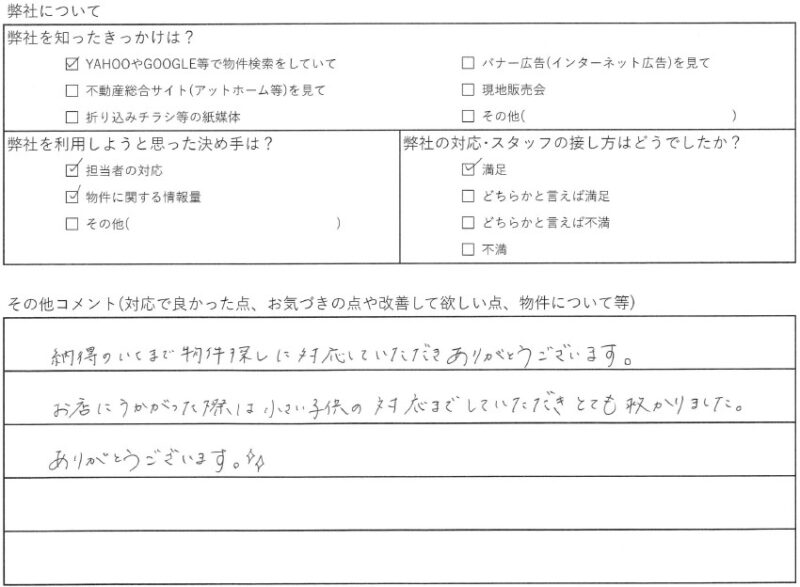 弊社について
弊社を知ったきっかけは？
☑ YAHOOやGOOGLE等で物件検索をしていて
□ バナー広告(インターネット広告)を見て
□ 不動産総合サイト(アットホーム等)を見て
□ 現地販売会
□ 折り込みチラシ等の紙媒体
□ その他( )
弊社を利用しようと思った決め手は？
☑ 担当者の対応
☑ 物件に関する情報量
□ その他( )
弊社の対応・スタッフの接し方はどうでしたか？
☑ 満足
□ どちらかと言えば満足
□ どちらかと言えば不満
□ 不満
その他コメント(対応で良かった点、お気づきの点や改善して欲しい点、物件について等)
納得のいくまで物件探しに対応していただきありがとうございます。
お店にうかがった際は小さい子供の対応までしていただきとても助かりました。
ありがとうございます。